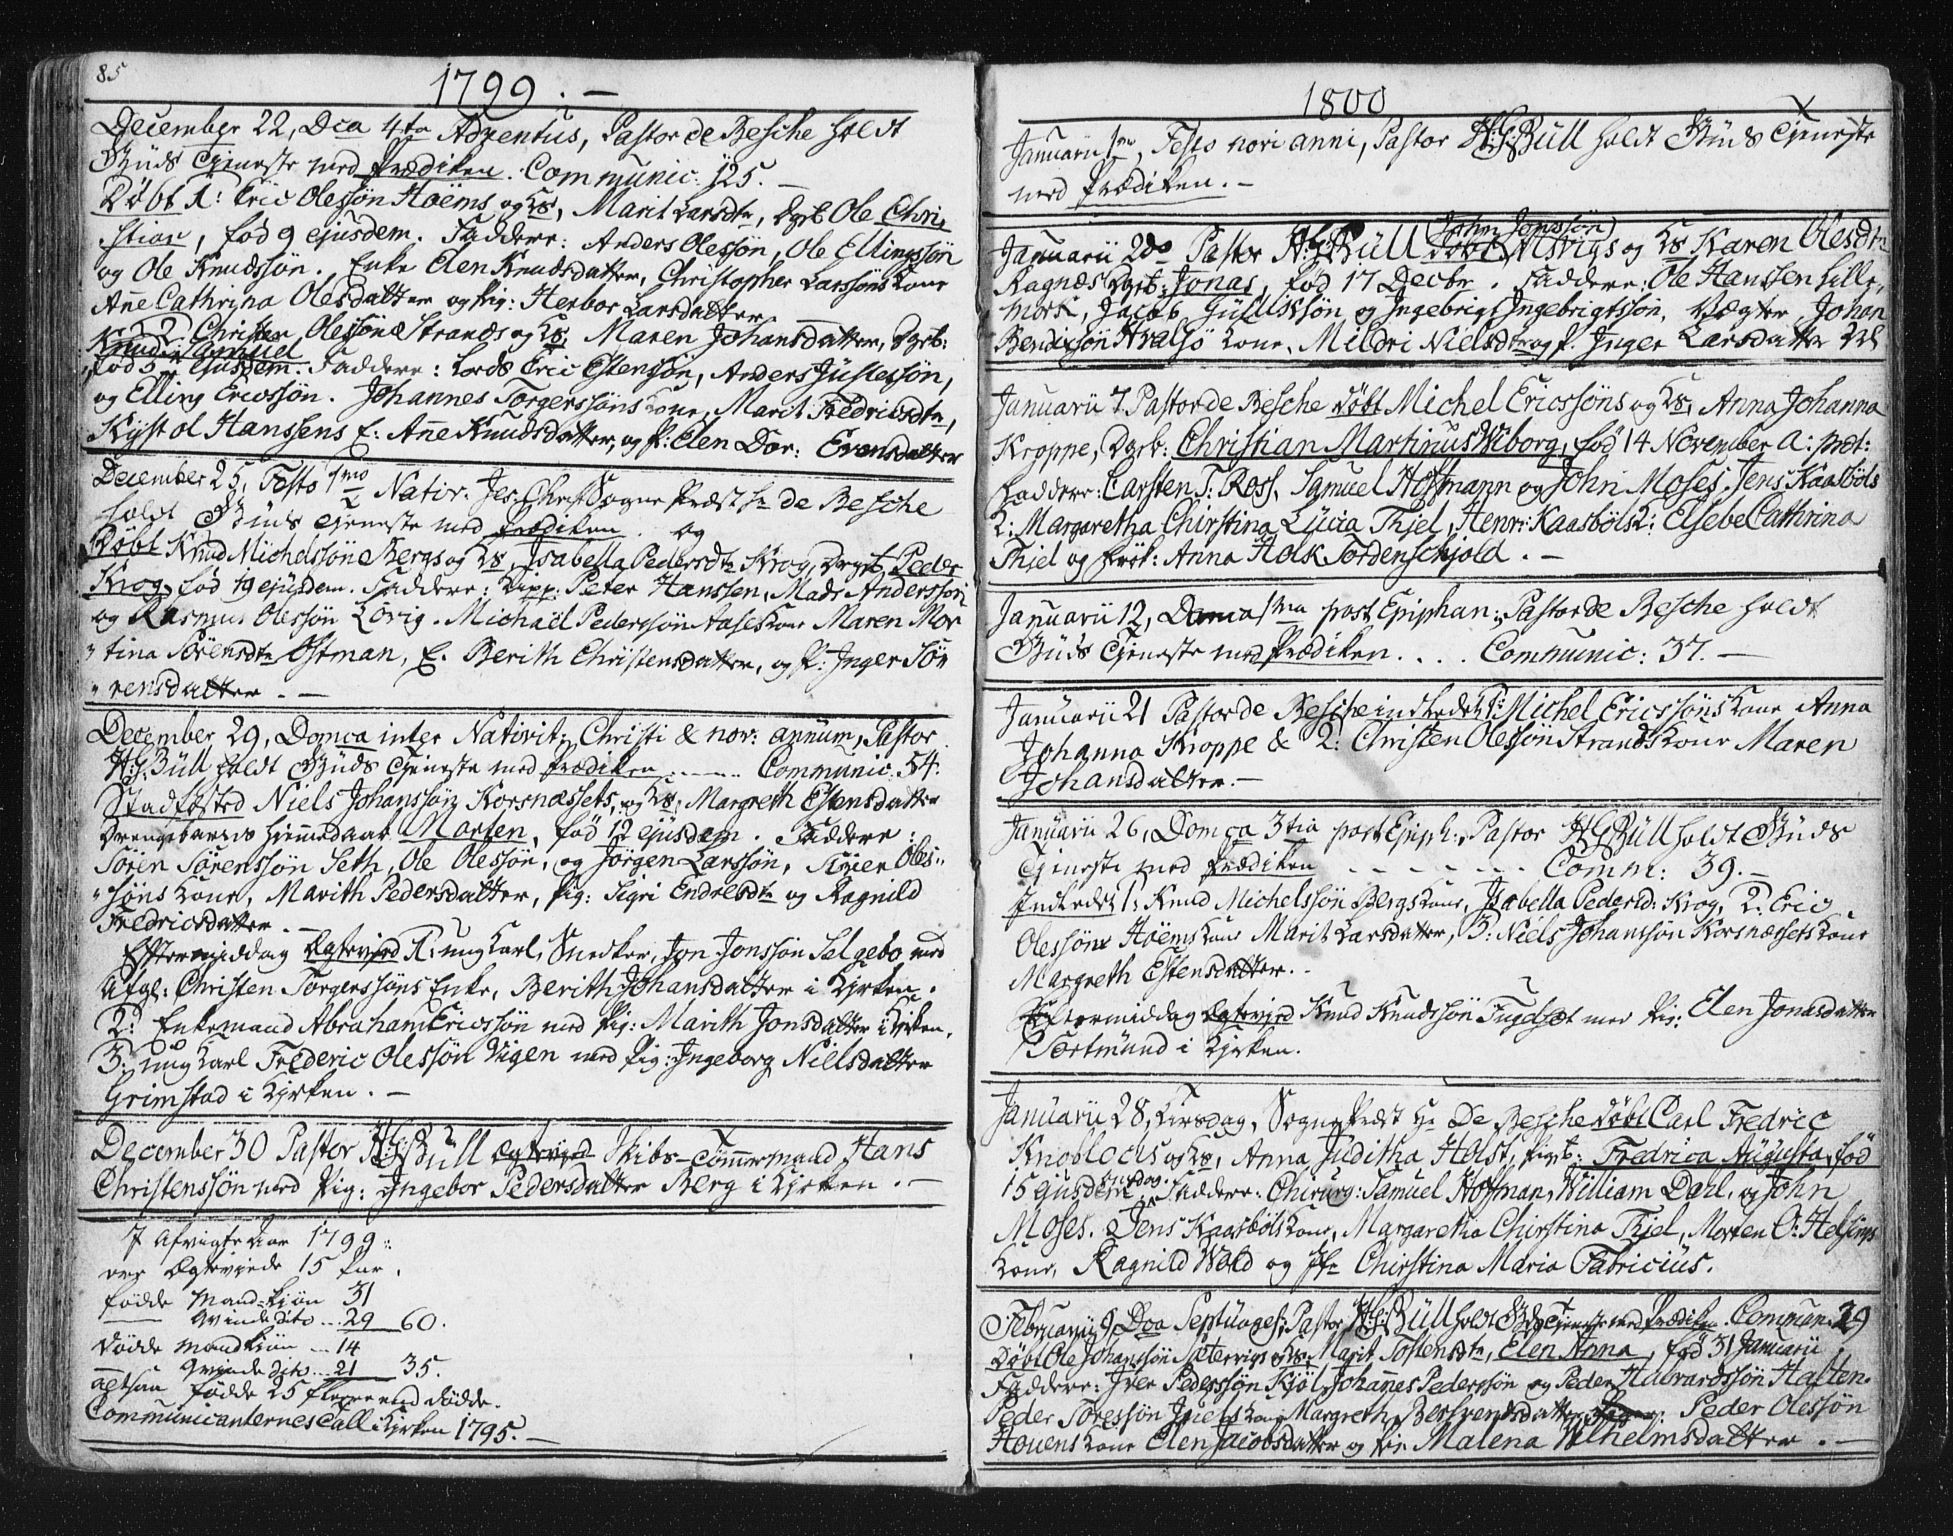 85
1799. —
December 22, Dca 4ta Adventus, Pastor de Besche holdt
Guds Tjeneste med Prædiken. Communic: 125. —
Døbt 1: Eric Olessøn Høems og Hs, Marit Larsdtr, Dgrb Ole Chri,,
stian, fød 9 ejusdem. Faddere: Anders Olessøn, Ole Ellingssøn
og Ole Knudssøn. Enke Elen Knudsdatter, Christopher Larssøns Kone
Ane Cathrina Olesdatter og Pig: Herbor Larsdatter.
2. Christen Olessøn Strands og Hs, Maren Johansdatter, Dgrb:
Knud Samuel
fød 5 ejusdem. Faddere: Lods Eric Estensøn, Anders Justessøn,
og Elling Ericssøn. Johannes Torgerssøns Kone, Marit Fredricsdtr,
Kystol Hanssens E: Ane Knudsdatter, og P: Elen Dor: Evensdatter
December 25, Festo 1mo Nativ. Jes: Christ Sogne Præst Hr de Besche
holdt Guds Tjeneste med Prædiken. og
Døbt Knud Michelssøn Bergs og Hs, Isabella Pedersdtr Krog, Drgb Peder
Krog, fød 19 ejusdem. Faddere: Peter Hanssen, Mads Anderssøn
og Rasmus Olessøn Lorvig. Michaël Pederssøn Aases Kone Maren Mor
,, tina Sörensdtr Østman, E. Berith Christensdatter, og P: Inger Sön
,, rensdatter. —
December 29, Domca inter Nativit: Christi & nov: annum, Pastor
HG: Büll holdt Guds Tjeneste med Prædiken ...... Communic: 54.
Stadfæsted Niels Johanssøn Korsnæssets, og Hs, Margreth Estensdatter
Drengebarns hjemmedaab Morten, fød 12 ejusdem. Faddere:
Sören Sörenssøn Seth, Ole Olessøn, og Jörgen Larssøn, Oles,,
,, söns Kone, Marith Pedersdatter, Pig: Sigri Endresdtr og Ragnild
Fredricsdatter. —
Eftermiddag Egteviet 1: ung Karl, Snedker, Jon Jonssøn Selgebo med
Afgl: Christen Torgerssøns Enke, Berith Johansdatter i Kirken.
2: Enkemand Abraham Ericssøn med Pig: Marith Jonsdatter i Kirken.
3: ung Karl Frederic Olessøn Vigen med Pig: Ingeborg Nielsdatter
Grimstad i Kirken. —
December 30 Pastor HG: Büll Egteviet Skibs-Tömmermand Hans
Christenssøn med Pig: Ingebor Pedersdatter Berg i Kirken. —
I Afvigte Aar 1799:
ere Egteviede 15 Par.
fødde Mandkiön 31
Qvinde dito ... 29 60.
Dödde Mandkiön ... 14
Qvinde dito ... 21 35.
altsaa fødde 25 flere end dödde.
Communicanternes Tall i Kirken 1795. —
1800
Januarii 1me, Festo novi anni, Pastor HG: Büll holdt Guds Tjeneste
med Prædiken. —
John Jonssøn
Januarii 2do Pastor HG: Büll døbt Alsvigs og Hs Karen Olesdtr
Ragnæs Dgrb: Jonas, fød 17 Decbr. Faddere: Ole Hanssen Lille,,
mork, Jacob Gulliksøn og Ingebrigt Ingebrigtssøn, Vægter Johan
Bendixøn Hvalsö Kone, Mildri Nielsdtr og P. Inger Larsdatter
Januarii 7. Pastor de Besche døbt Michel Ericssøns og Hs, Anna Johanna
Kroppe, Dgrb: Christian Martinus Wiborg, fød 14 November a: præt:
Faddere: Carsten T: Ross, Samuel Hoffmann og John Moses. Jens Kaasböls
K: Margaretha Chirstina Lucia Thjel, Henr: Kaasböls K: Elsebe Cathrina
Thjel og Frök: Anna Hok Tordenschjold. —
Januarii 12, Domca 1ma post Epiphan: Pastor de Besche holdt
Guds Tjeneste med Prædiken. . . . Communic: 37. —
Januarii 21 Pastor de Besche indledet 1: Michel Ericssøns Kone Anna
Johanna Kroppe & 2: Christen Olessøn Strands Kone Maren
Johansdatter. —
Januarii 26, Domca 3tia post Epiph:, Pastor HG: Büll holdt Guds
Tjeneste med Prædiken - - - - - - - Comm: 39. —
Indledet 1: Knud Michelssøn Bergs Kone, Isabella Pedersd: Krog, 2: Eric
Olessøns Høems Kone Marit Larsdatter, 3: Niels Johanssøn Korsnæssets Kone
Margreth Estensdatter. -
Eftermiddag Egteviet Knud Knudssøn Fugelsæt med Pig: Elen Jonasdatter
Dortmund i Kirken.
Januarii 28, Tirsdag, Sogne Præst Hr De Besche döbt Carl Fredric
Knoblocks og Hs, Anna Juditha Holst, Pigb: Fredrica Augusta, fød
15 ejusdem. Faddere: Chirurg: Samuel Hoffman, William Dahl, og John
Moses. Jens Kaasböls Kone, Margaretha Chirstina Thjel, Morten O: Helsings
Kone, Ragnild Wold og Jfr Chirstina Maria Fabricius.
Februarii 9, Dca Septuages: Pastor HG: Büll holdt Guds Tjeneste med Prædiken Commun: 29
Döbt Ole Johanssøn Sætervigs og Hs, Marit Tostensdtr, Elen Anna, fød 31 Januarii
Faddere: Iver Pederssøn Kjöl, Johanes Pederssøn og Peder Halvardssøn Haften.
Peder Toressøn Kone Margreth Bersvendsdatter, Peder Olessøn
Hovens Kone Elen Jacobsdatter og Pi: Malena Wilhelmsdatter. —